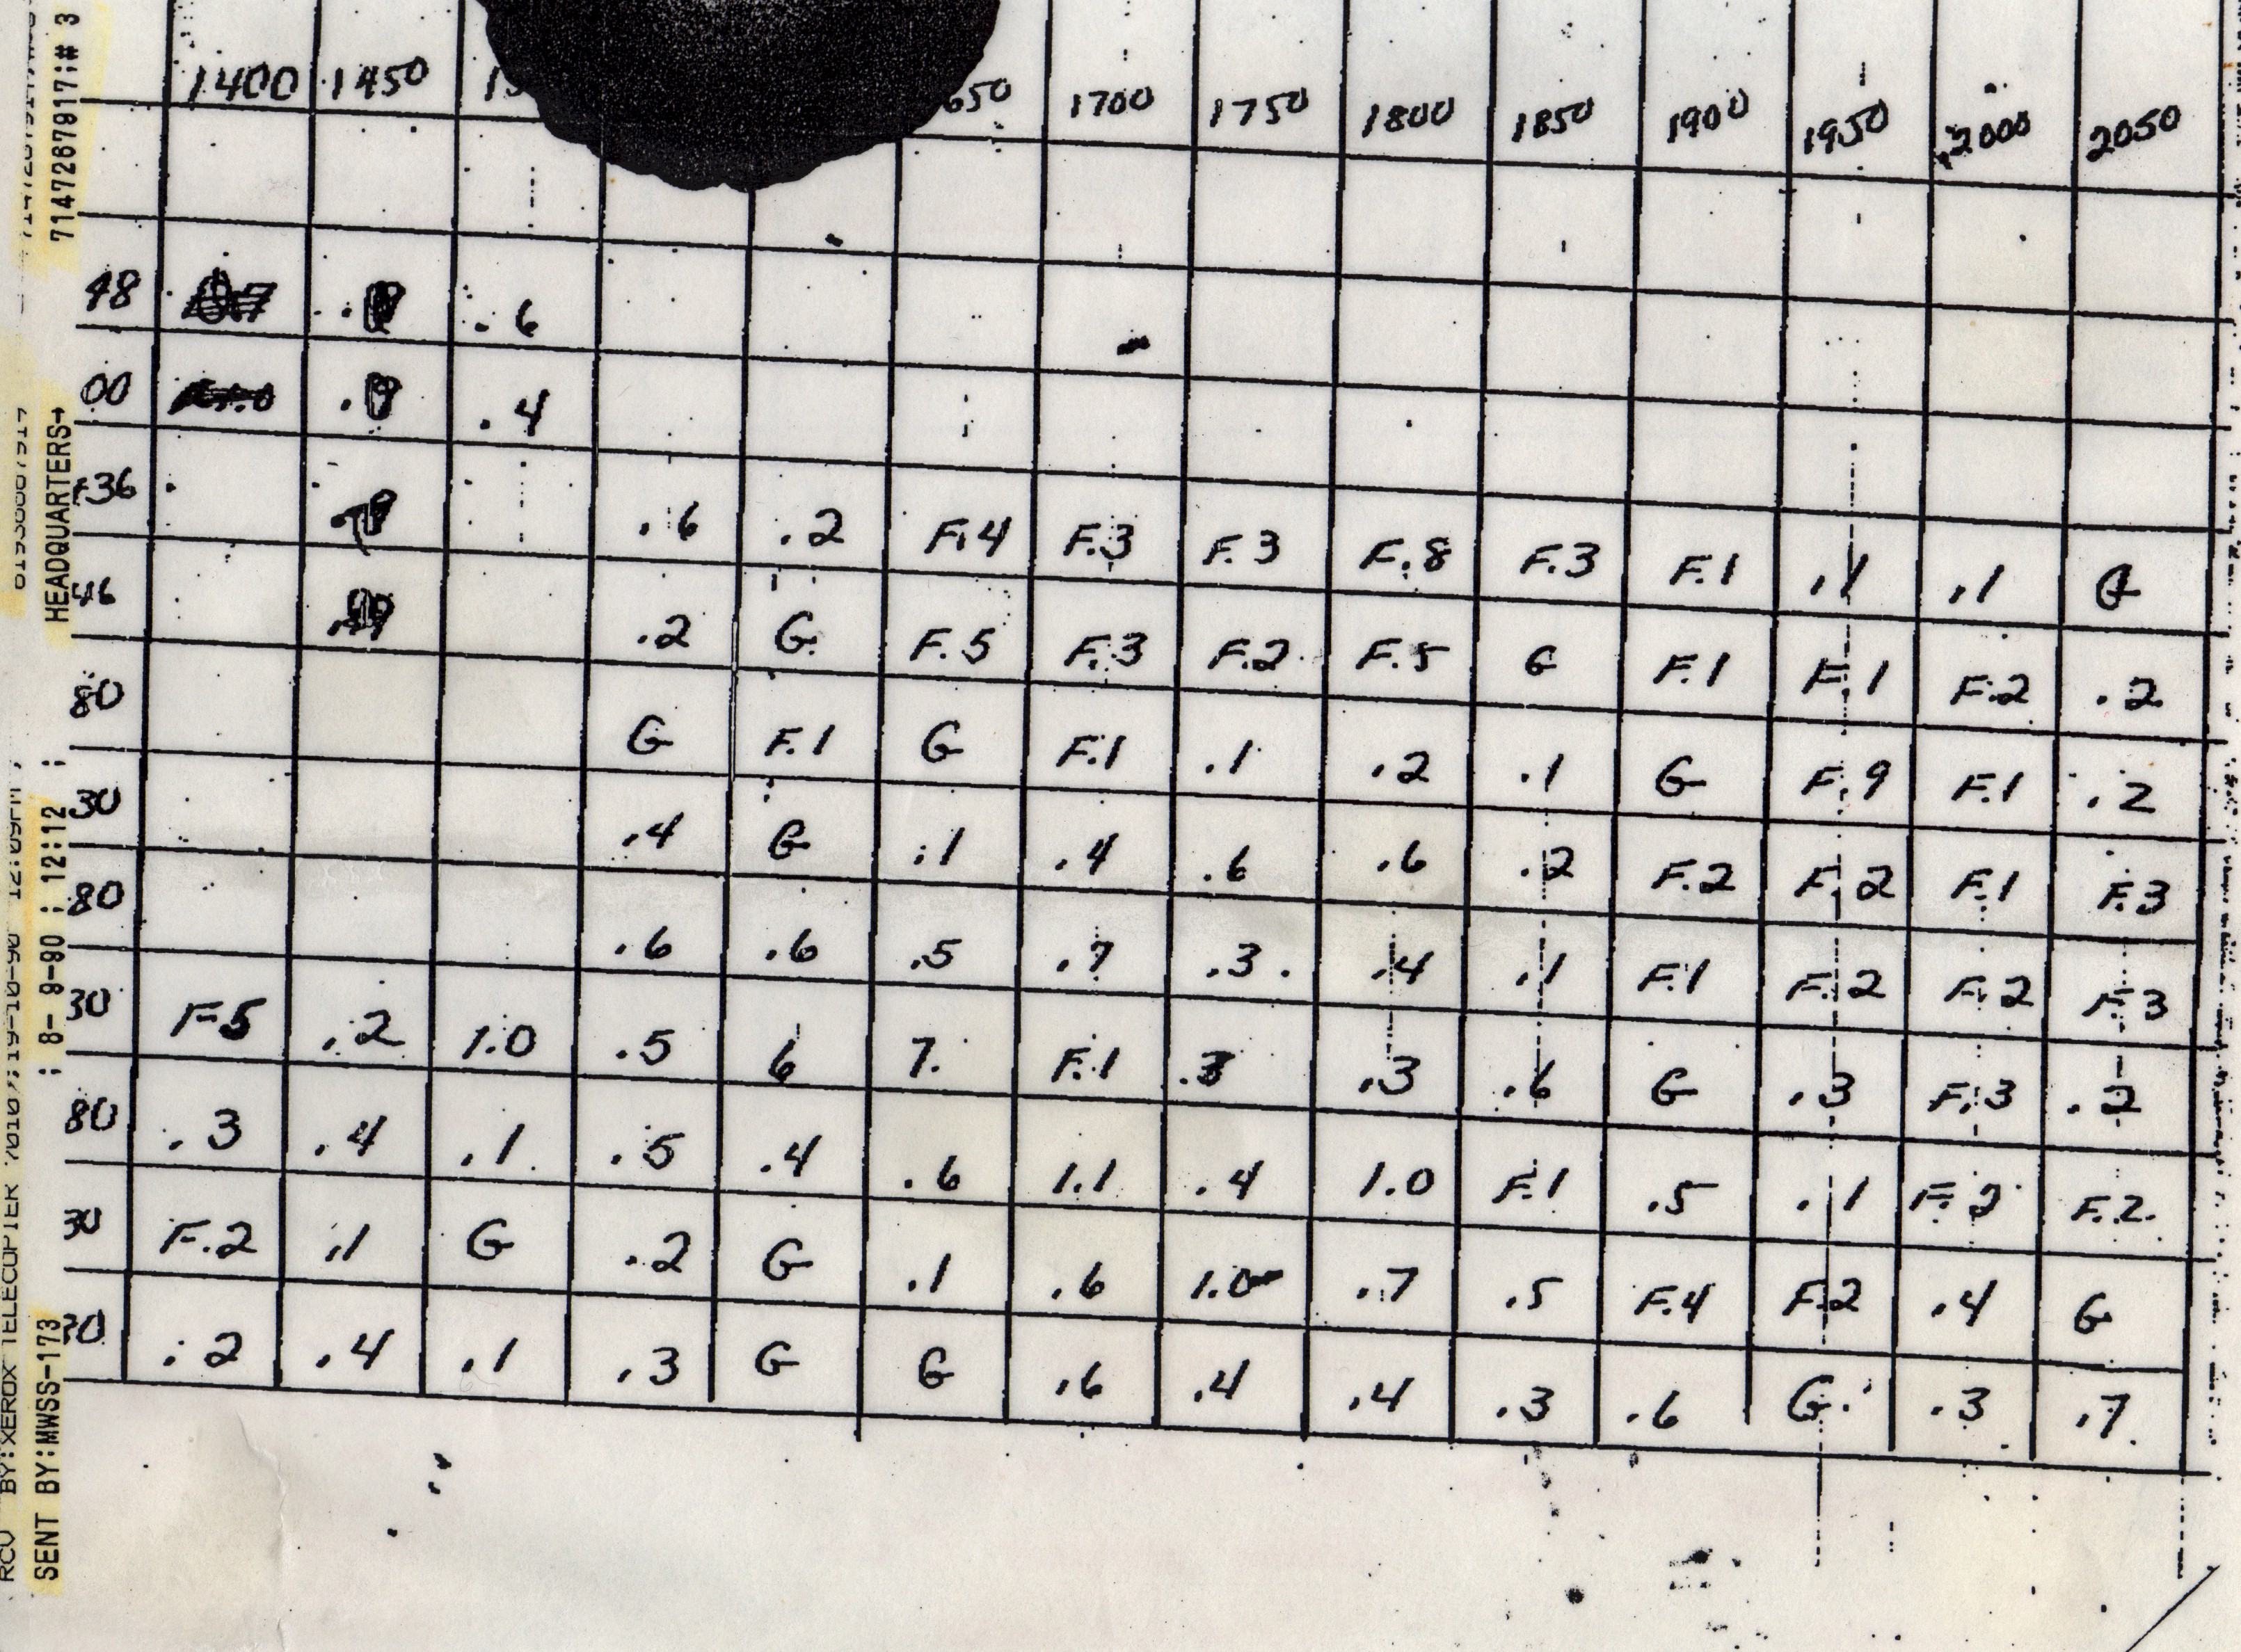 1400 1450 15 650 1700 1750 1800 1850 1900 1950 2000 2050
48 .6
00 .4
36 .6 .2 F.4 F.3 F.3 F.8 F.3 F.1 .1 .1 G
46 .2 G F.5 F.3 F.2 F.5 G F.1 F.1 F.2 .2
80 G F.1 G F.1 .1 .2 .1 G F.9 F.1 .2
30 .4 G .1 .4 .6 .6 .2 F.2 F.2 F.1 F.3
80 .6 .6 .5 .7 .3 .4 .1 F.1 F.2 F.2 F.3
30 F5 .2 1.0 .5 6 7. F.1 .3 .3 .6 G .3 F.3 .2
80 .3 .4 .1 .5 .4 .6 1.1 .4 1.0 F.1 .5 .1 F.2 F.2
30 F.2 .1 G .2 G .1 .6 1.0 .7 .5 F.4 F.2 .4 G
.2 .4 .1 .3 G G .6 .4 .4 .3 .6 G .3 .7
SENT BY:MWSS-173 ; 8- 9-90 ; 12:12 ; HEADQUARTERS→ 7147267917;# 3
RCV BY:XEROX TELECOPIER